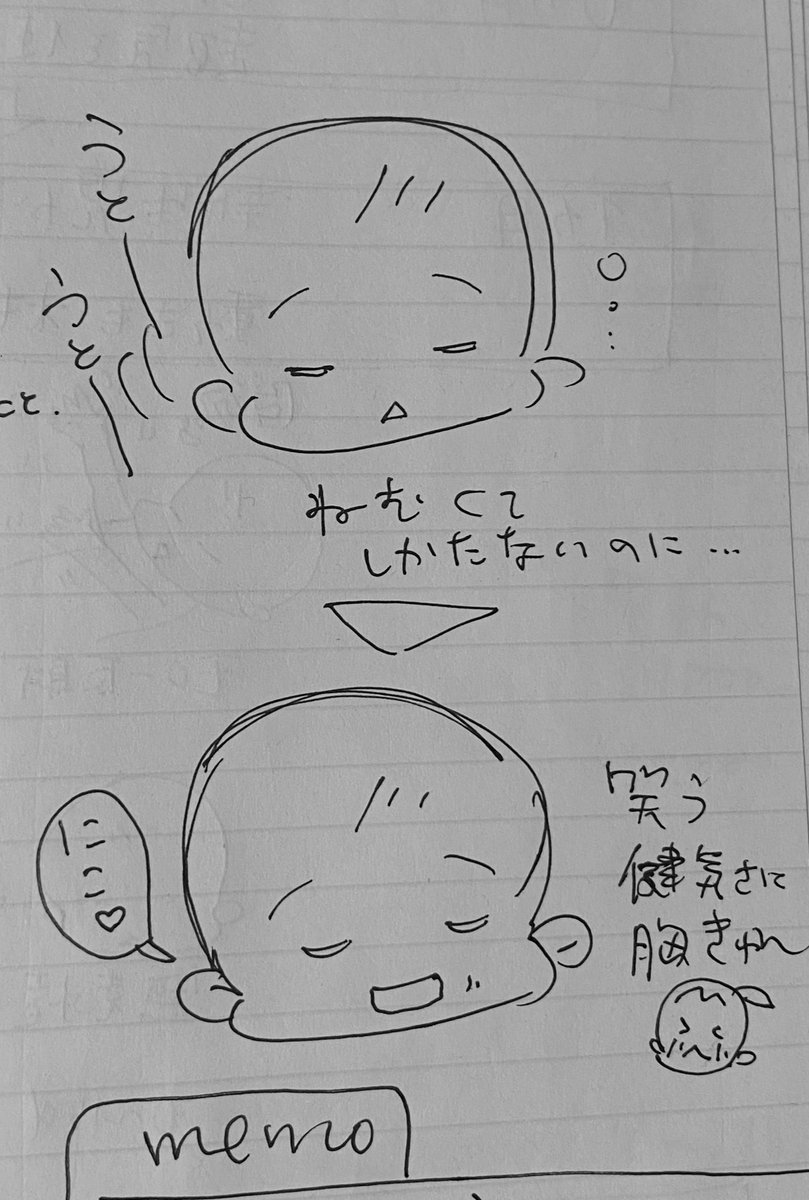 うと
うと
こと.
ねむくて
しかたないのに…
にこ♡
笑う
健気さに
胸きゅん
memo